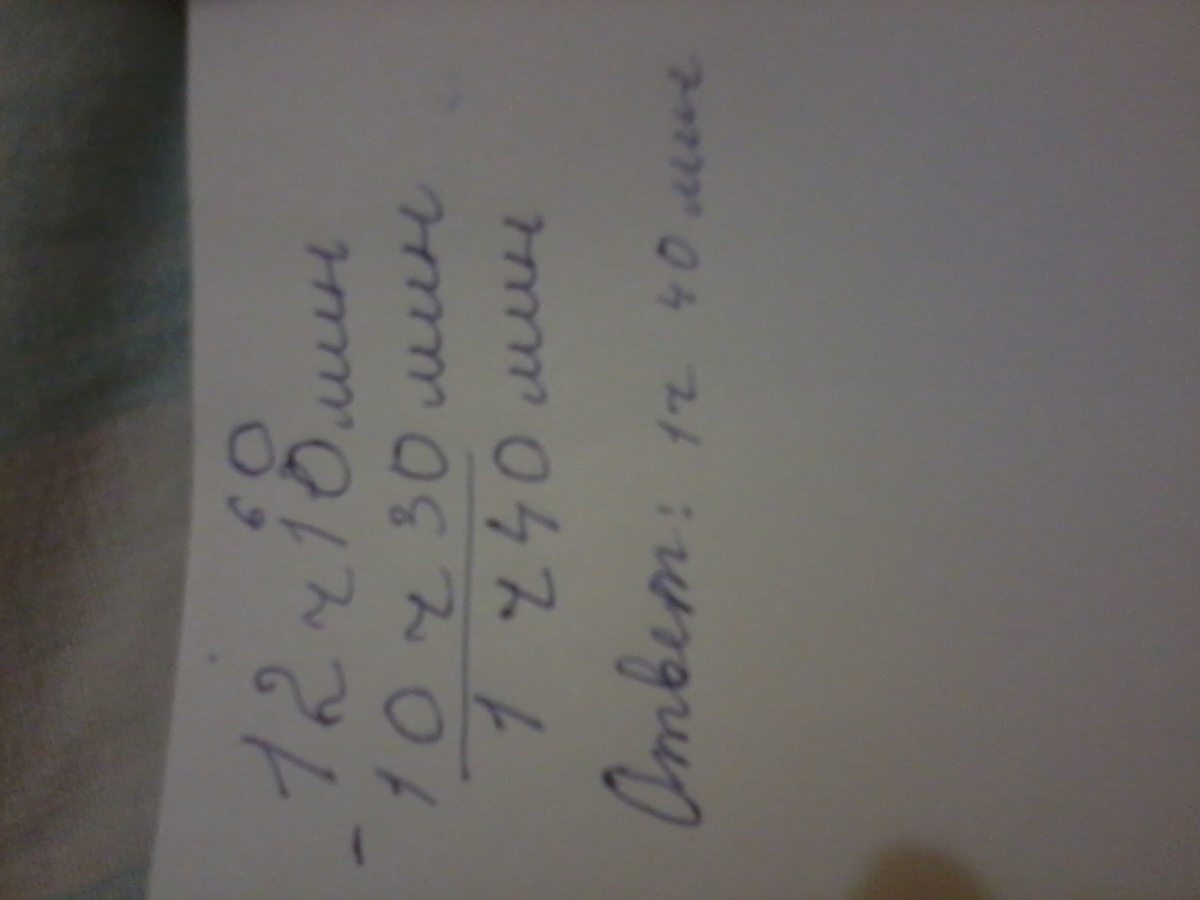 60
12 ч 10 мин
-
10 ч 30 мин
1 ч 40 мин
Ответ: 1ч 40 мин